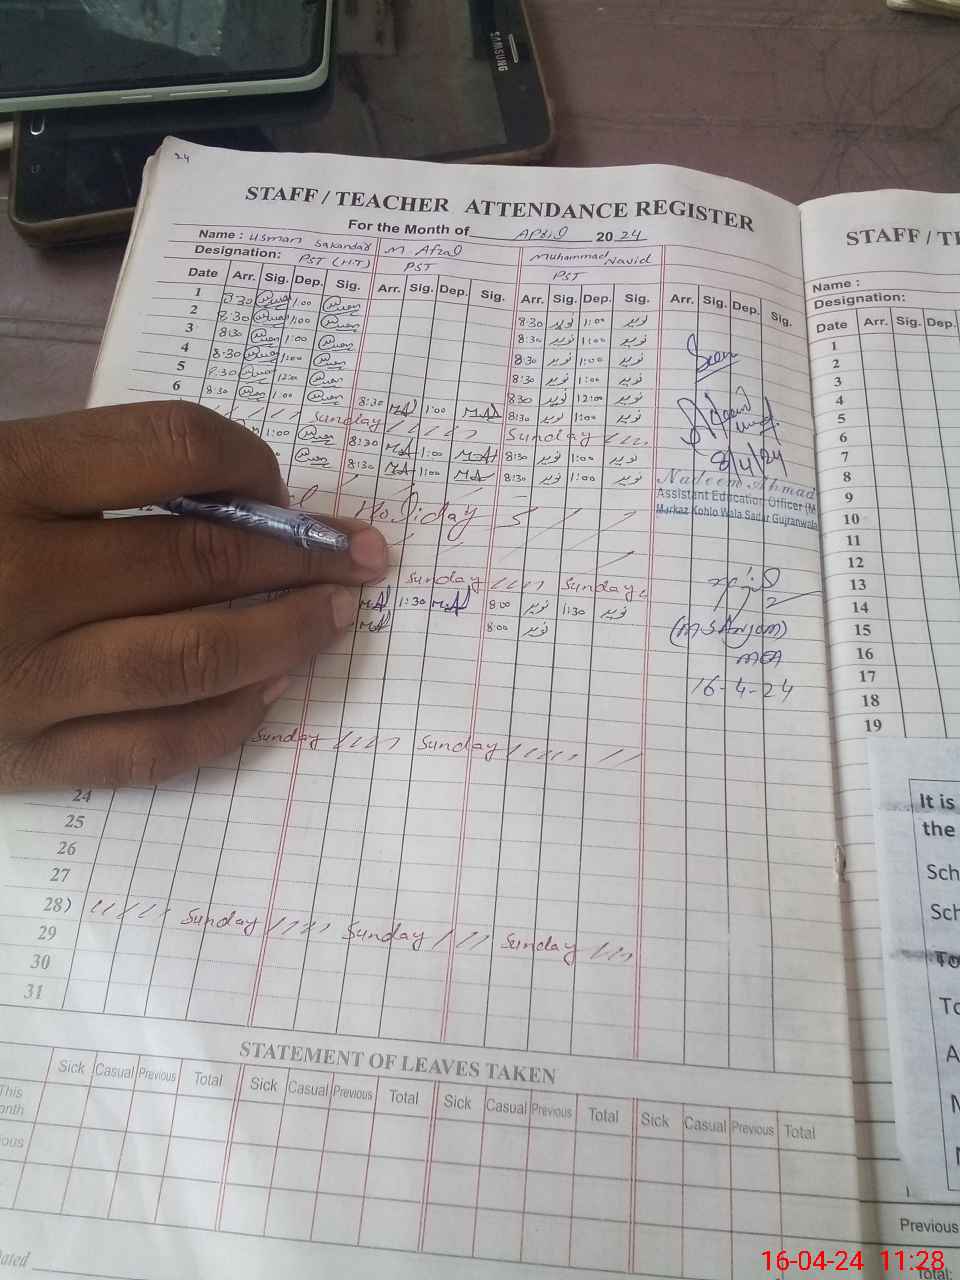 SAMSUNG
24
STAFF / TEACHER ATTENDANCE REGISTER
For the Month of April 2024
Name : Usman Sakandar M. Afzal Muhammad Navid
Designation: PST (H.T) PST PST
Date Arr. Sig. Dep. Sig. Arr. Sig. Dep. Sig. Arr. Sig. Dep. Sig. Arr. Sig. Dep. Sig.
1 8:30 1:00 8:30 نوید 1:00 نوید
2 8:30 1:00 8:30 نوید 1:00 نوید
3 8:30 1:00 8:30 نوید 1:00 نوید
4 8:30 1:00 8:30 نوید 1:00 نوید
5 8:30 12:00 8:30 نوید 12:00 نوید
6 8:30 1:00 8:30 MA 1:00 MA 8:30 نوید 1:00 نوید
Sunday Sunday
1:00 8:30 MA 1:00 MA 8:30 نوید 1:00 نوید
8:30 MA 1:00 MA 8:30 نوید 1:00 نوید
Seen
8/4/24
Nadeem Ahmad
Assistant Education Officer (M
Markaz Kohlo Wala Sadar Gujranwala
Holiday
Sunday Sunday
MA 1:30 MA 8:00 نوید 1:30 نوید
MA 8:00 نوید
(M S Anjum)
MEA
16-4-24
Sunday Sunday
24
25
26
27
28) Sunday Sunday Sunday
29
30
31
STATEMENT OF LEAVES TAKEN
Sick Casual Previous Total Sick Casual Previous Total Sick Casual Previous Total Sick Casual Previous Total
This
onth
ious
ated
STAFF / TE
Name :
Designation:
Date Arr. Sig. Dep.
1
2
3
4
5
6
7
8
9
10
11
12
13
14
15
16
17
18
19
It is
the
Sch
Sch
To
To
A
Previous
Total:
16-04-24 11:28